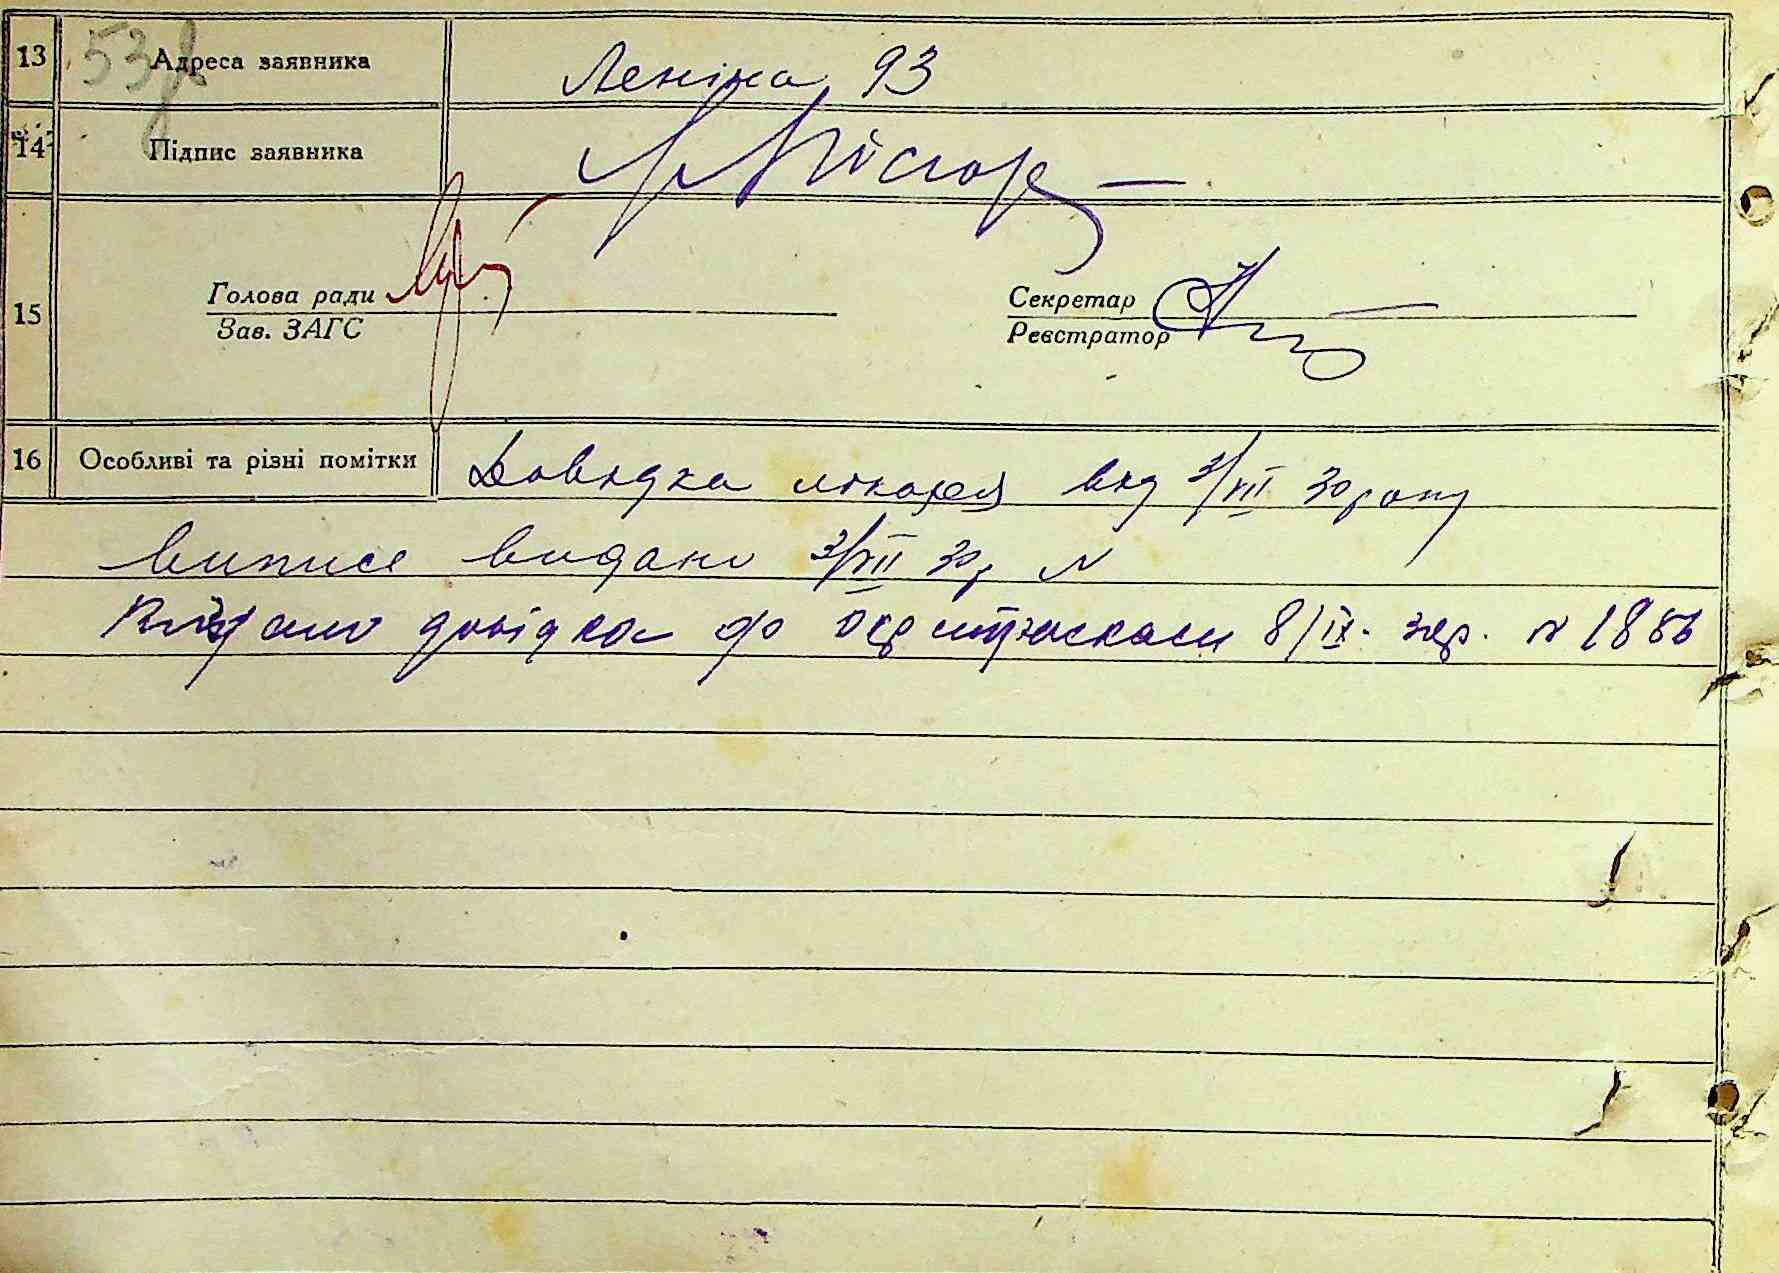 13 Адреса заявника Леніна 93
14 Підпис заявника
15 Голова ради Секретар
Зав. ЗАГС Реєстратор
16 Особливі та різні помітки Довидка лікаря вид 3/VIII 30 року
випис видано 3/VIII 30р N
Видано довідка до 8/IX. N